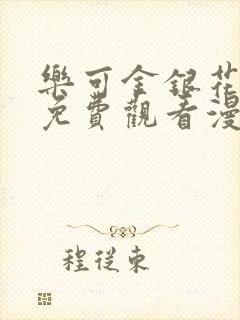 樂可金銀花
免費觀看漫
程從東